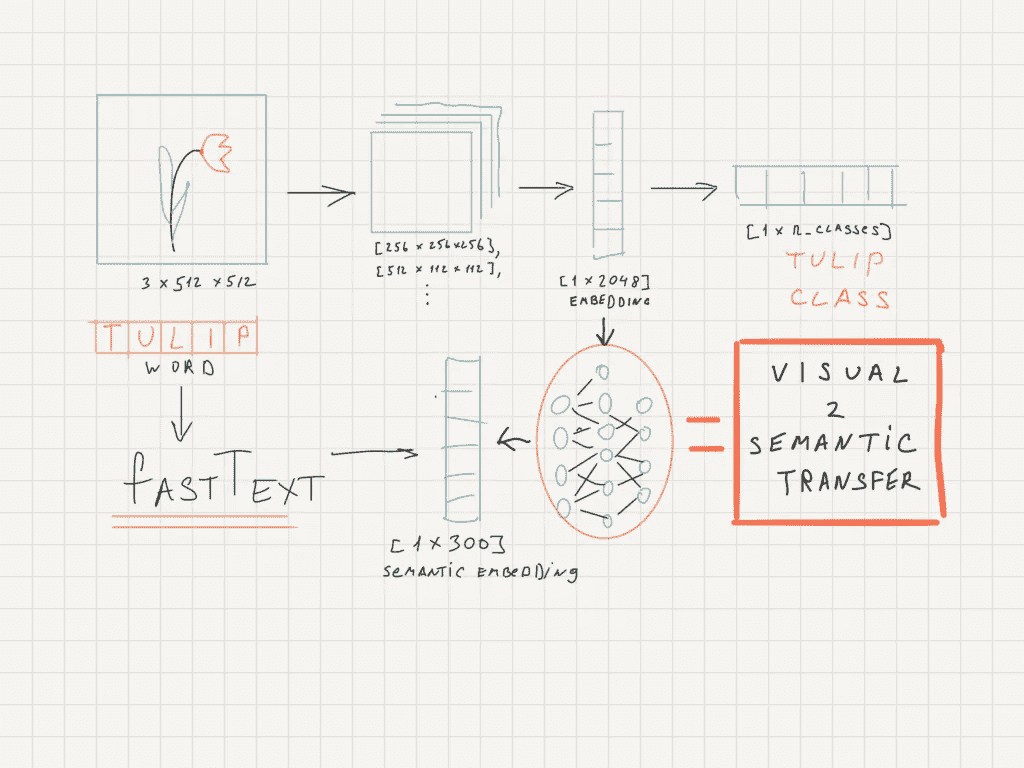 [256 × 256×256],
[512 × 112 × 112],
⋮
3 × 512 × 512
[1 × 2048]
EMBEDDING
[1 × n_CLASSES]
TULIP
CLASS
TULIP
WORD
fASTTEXT
[1 × 300]
SEMANTIC EMBEDDING
VISUAL
2
SEMANTIC
TRANSFER